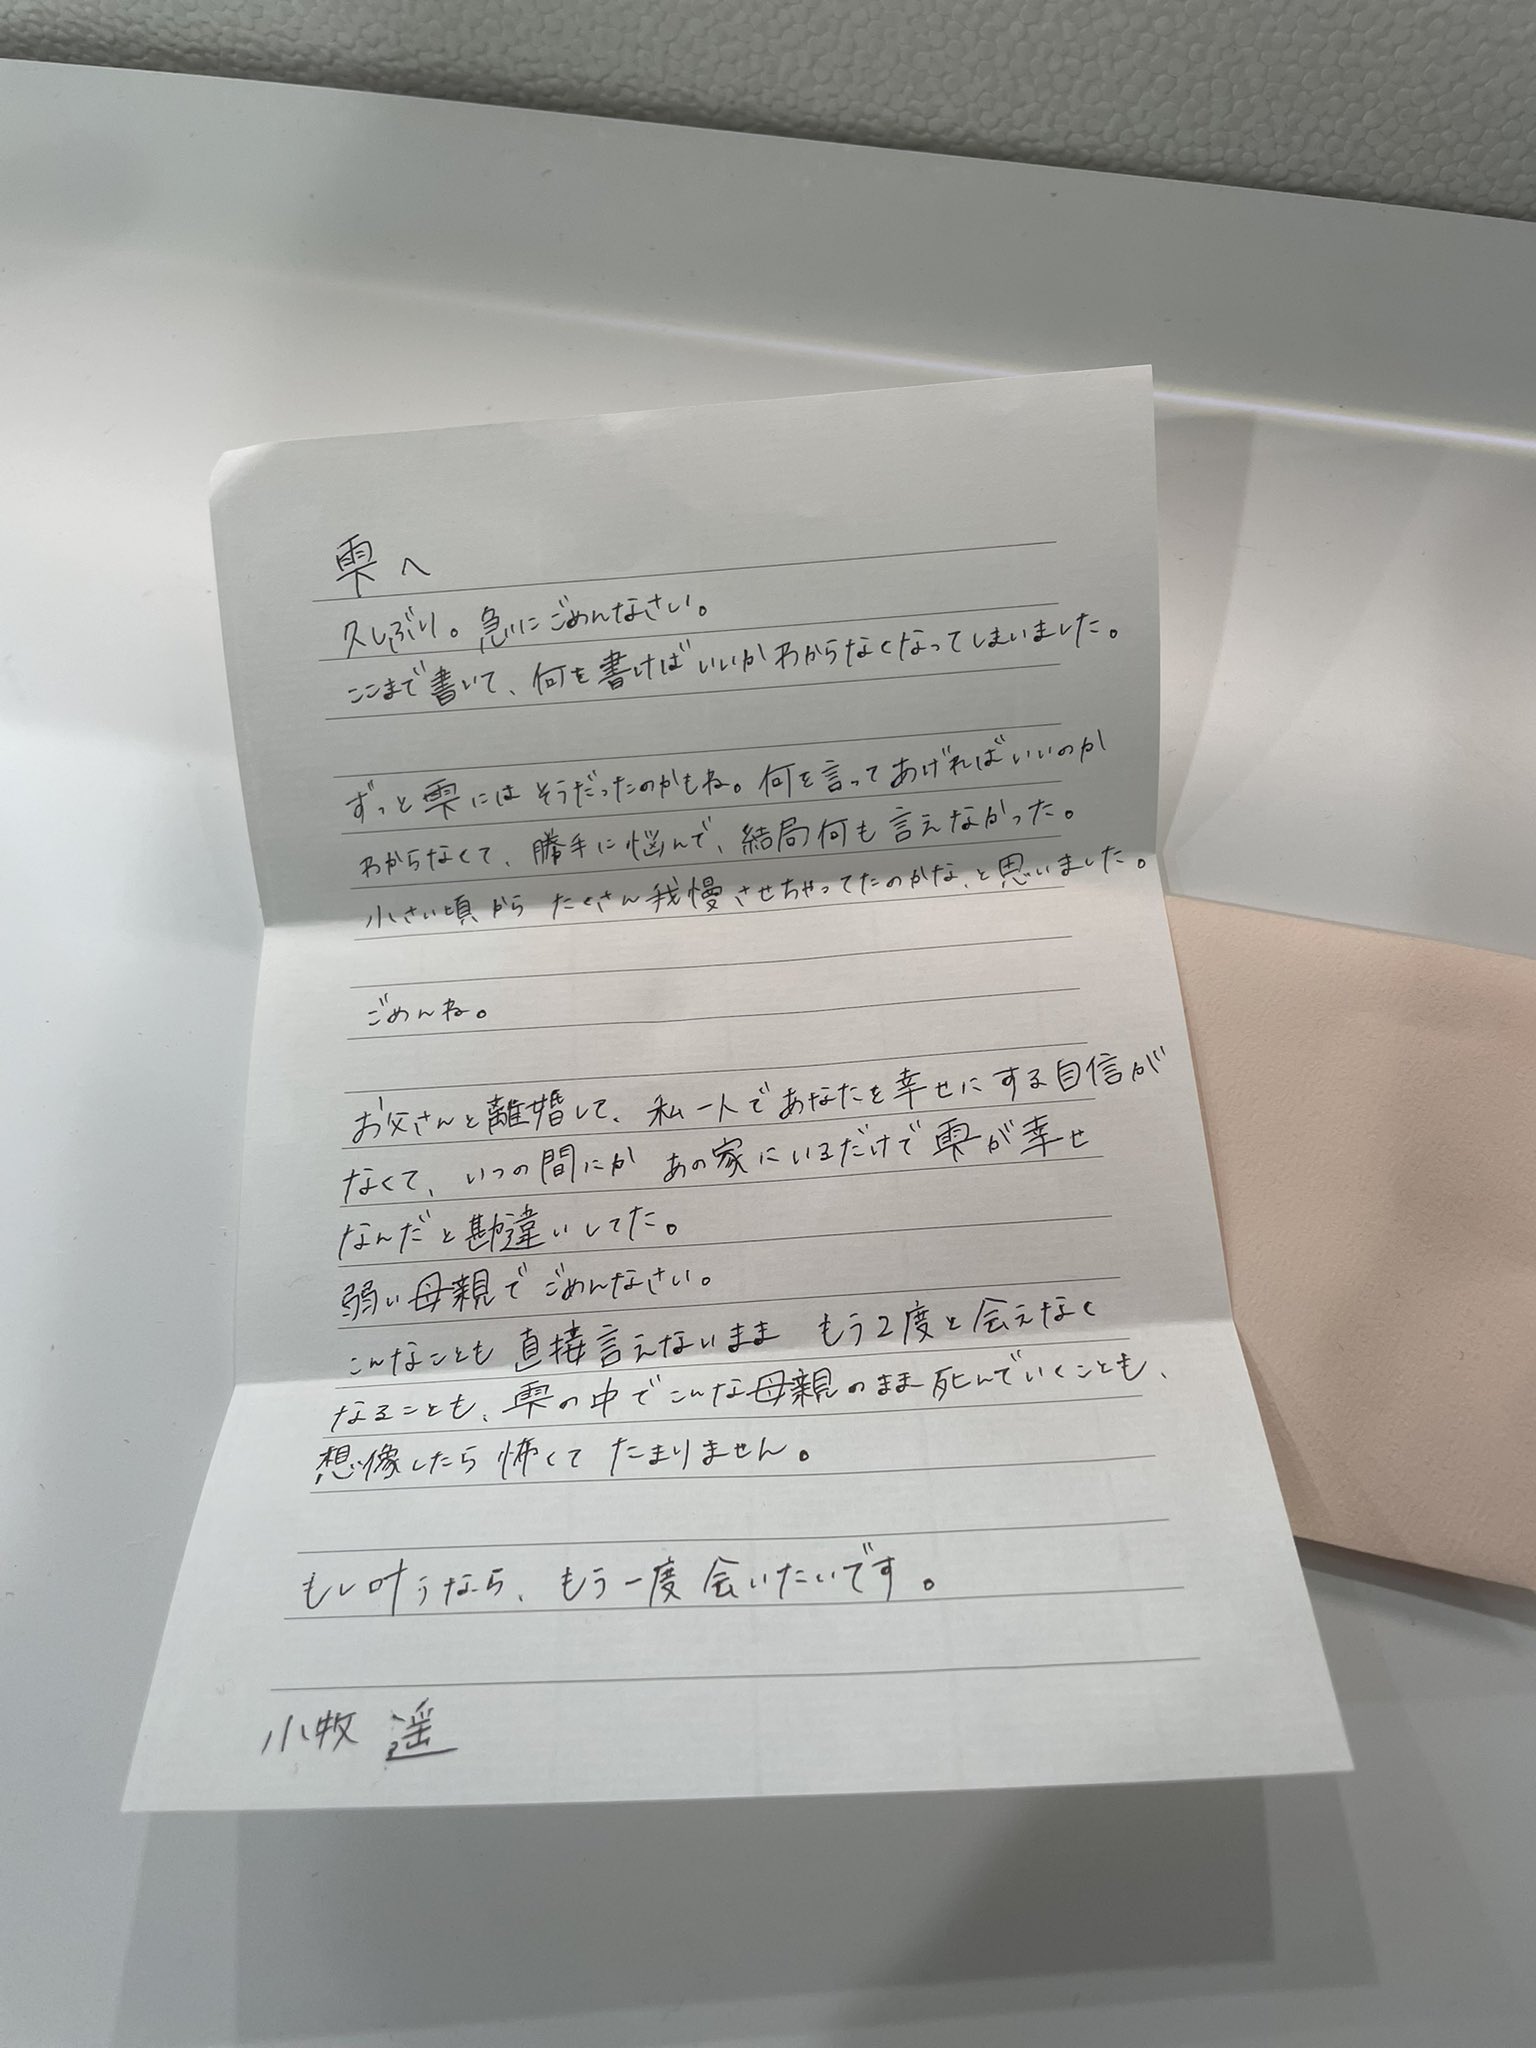 雫へ
久しぶり。急にごめんなさい。
ここまで書いて、何を書けばいいかわからなくなってしまいました。
ずっと雫にはそうだったのかもね。何を言ってあげればいいのか
わからなくて、勝手に悩んで、結局何も言えなかった。
小さい頃から たくさん我慢させちゃってたのかな、と思いました。
ごめんね。
お父さんと離婚して、私一人であなたを幸せにする自信が
なくて、いつの間にか あの家にいるだけで雫が幸せ
なんだと勘違いしてた。
弱い母親でごめんなさい。
こんなことも直接言えないまま もう2度と会えなく
なることも、雫の中でこんな母親のまま死んでいくことも、
想像したら怖くて たまりません。
もし叶うなら、もう一度会いたいです。
小牧 遥